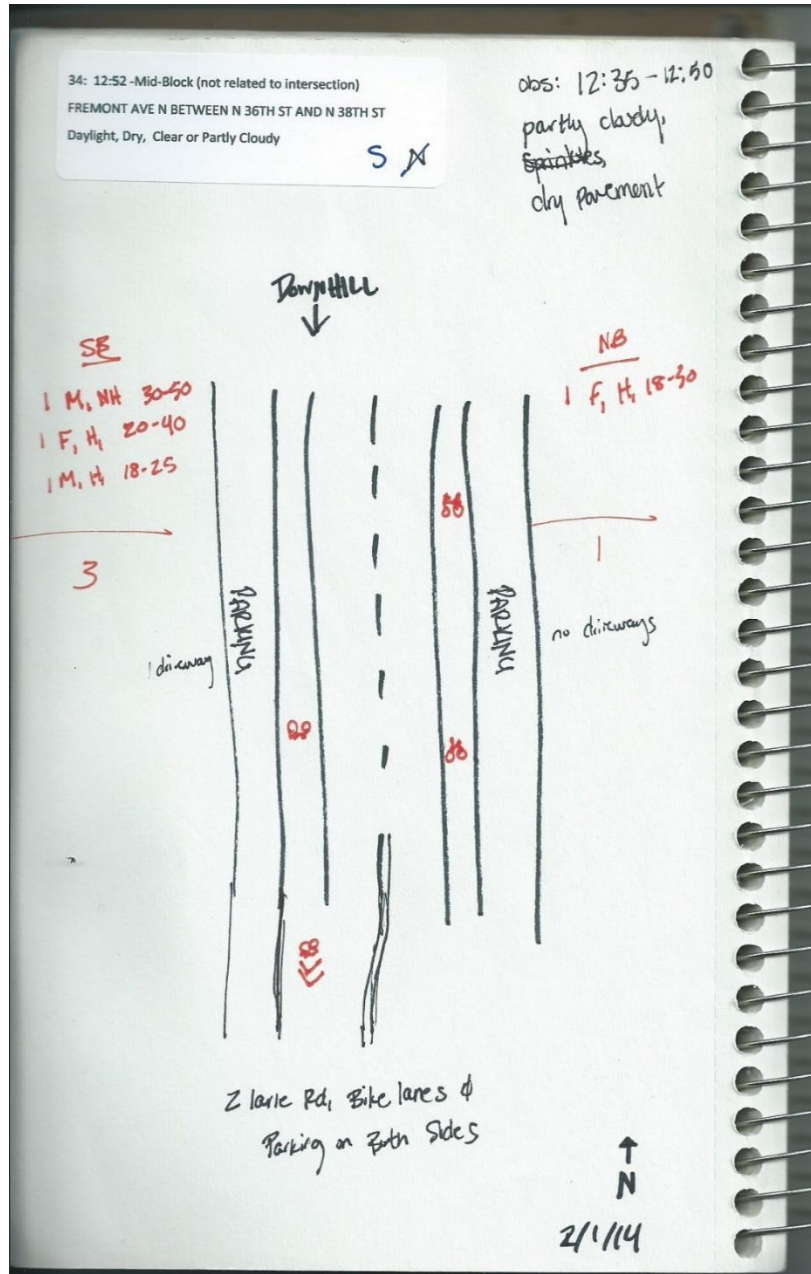 34: 12:52 -Mid-Block (not related to intersection)
FREMONT AVE N BETWEEN N 36TH ST AND N 38TH ST
Daylight, Dry, Clear or Partly Cloudy
S N
obs: 12:35 - 12:50
partly cloudy,
Sprinkles,
dry pavement
DOWNHILL
SB
1 M, NH 30-50
1 F, H, 20-40
1 M, H, 18-25
3
NB
1 F, H, 18-30
1
PARKING
PARKING
1 driveway
no driveways
2 lane Rd, Bike lanes &
Parking on Both Sides
N
2/1/14